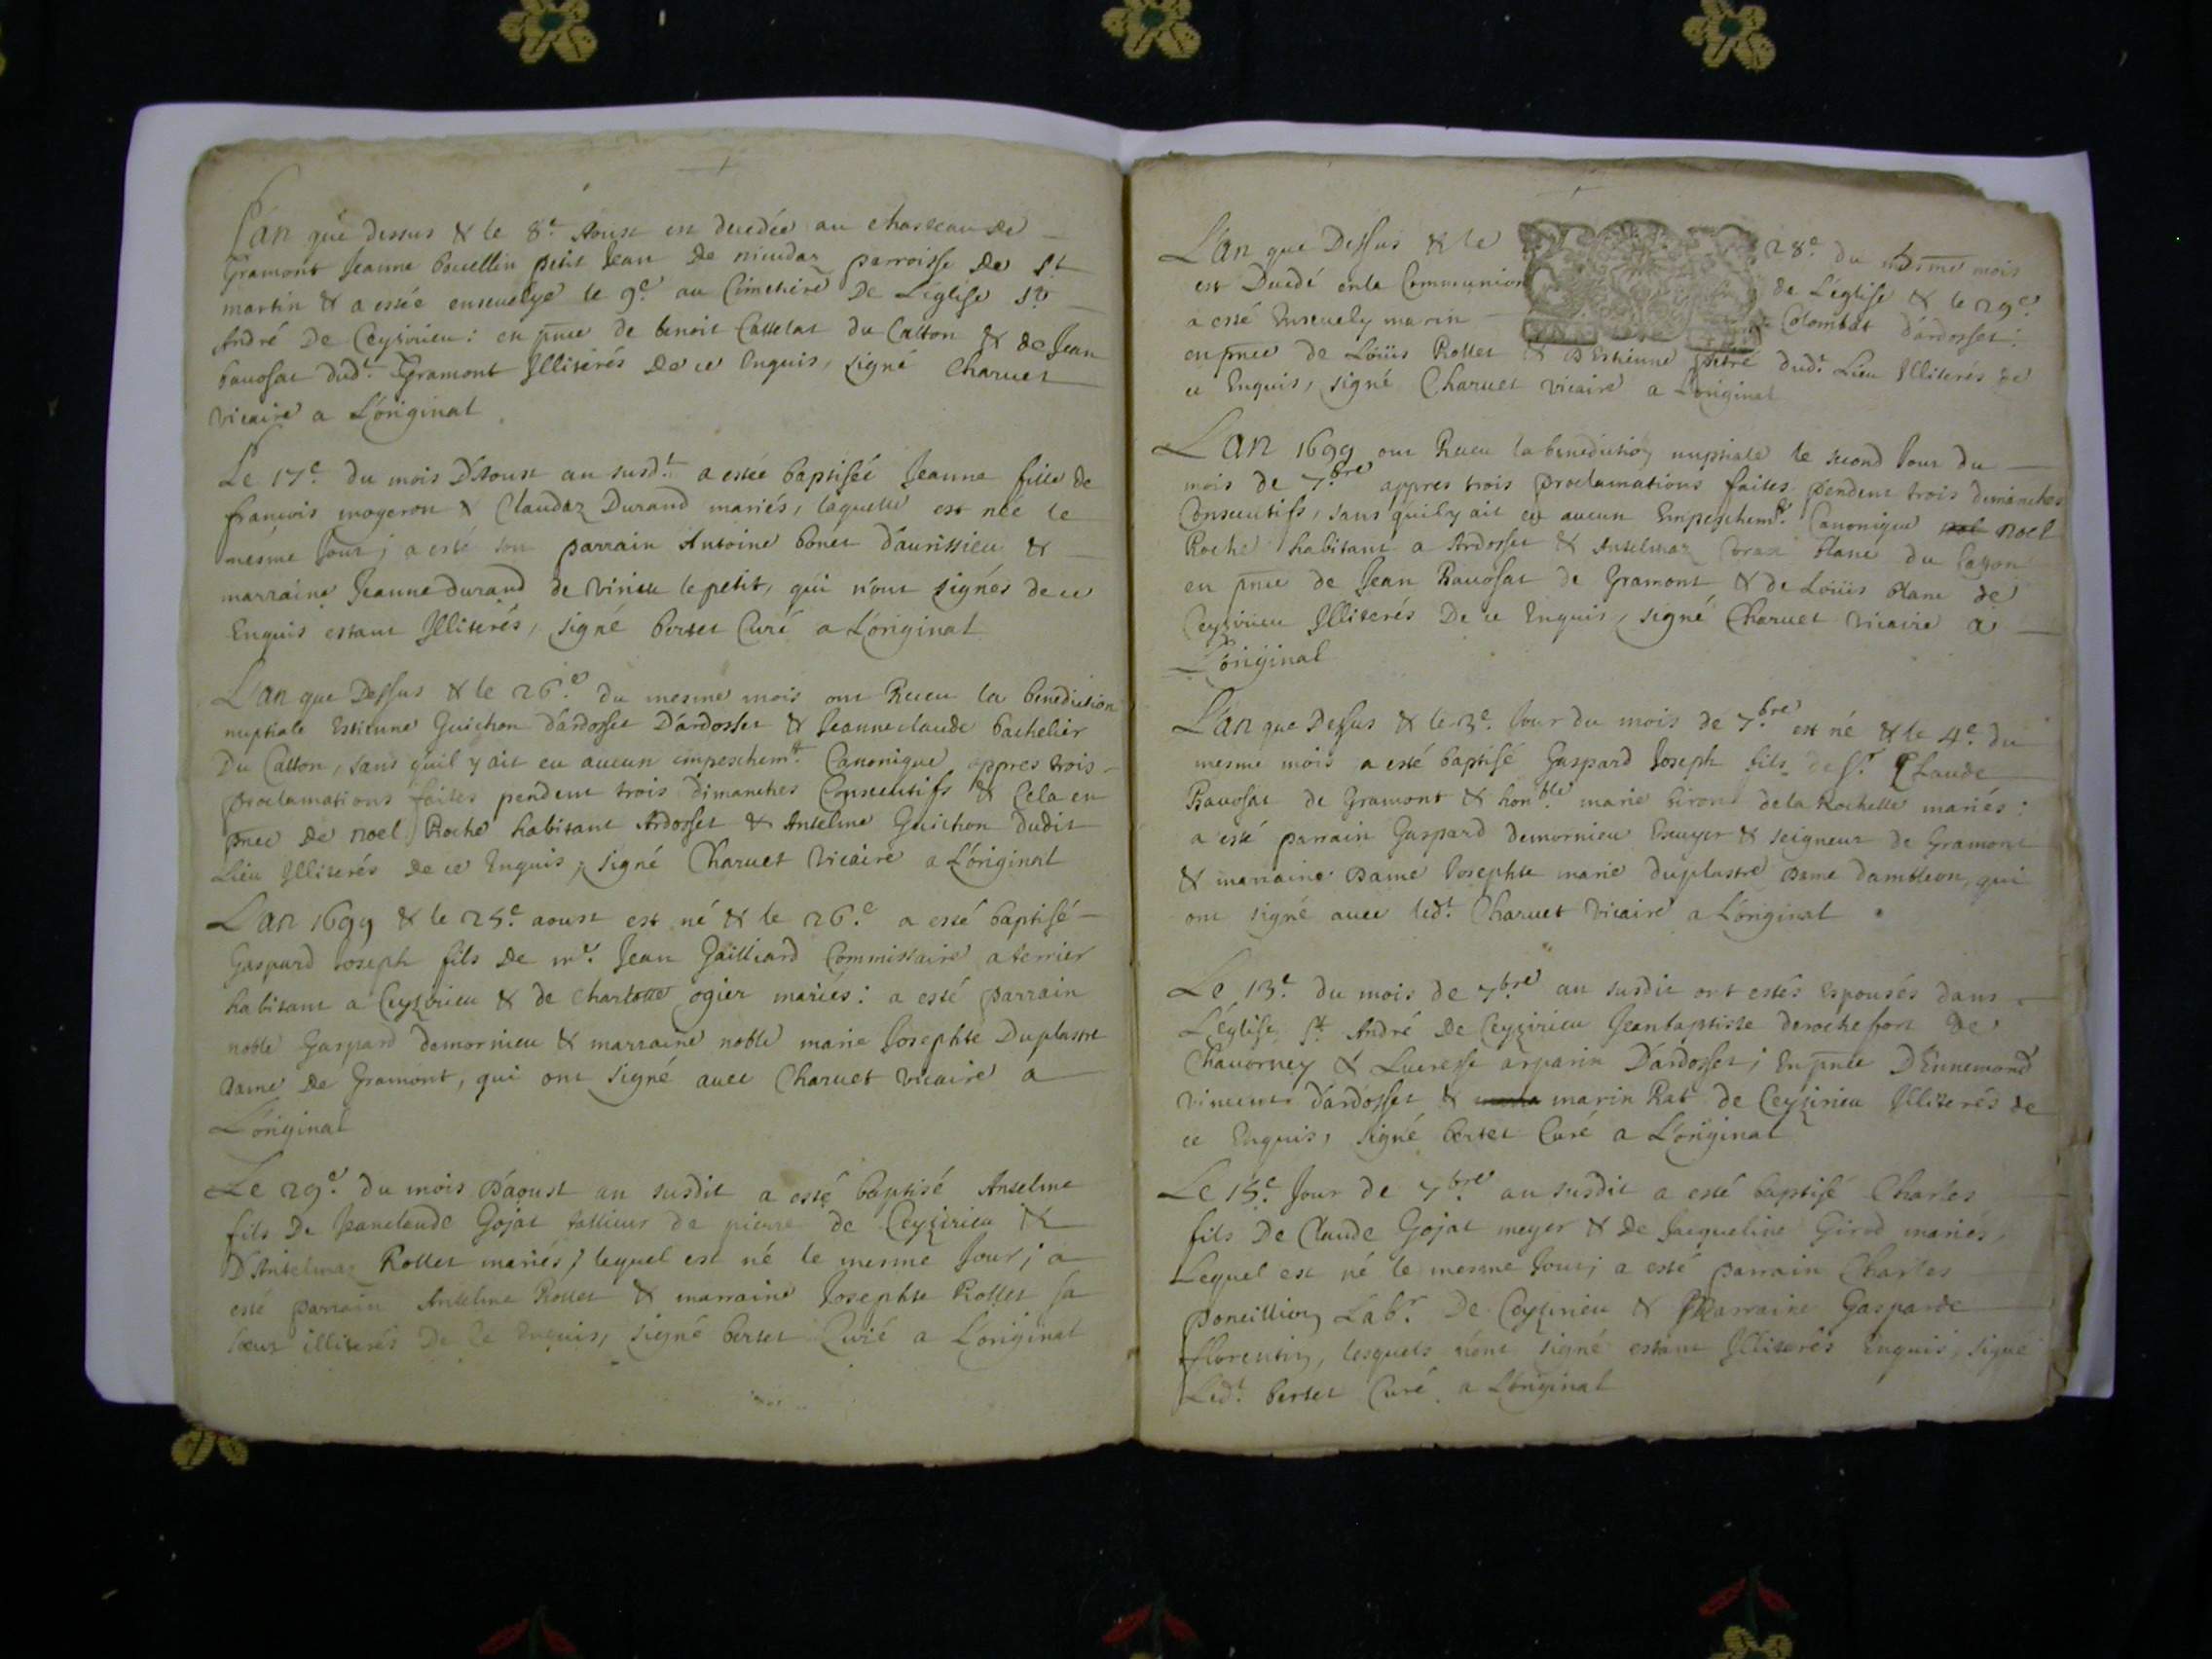 L'an que dessus & le 8e. Aoust est decedée au chasteau de
Gramont Jeanne bouellin petit Jean De nicudaz parroisse De St
martin & a estée enseuelye le 9e. au Cimetiere De L'eglise St
André De Ceyzirieu: en pnce de benoit Cattelat du Catton & de Jean
bauosat dudt. Gramont Illiterés De ce Enquis, signé Charuet
vicaire a L'original
Le 17e. du mois D'Aoust an susdt. a estée baptisée Jeanne fille de
francois mogeron & Claudaz Durand mariés, laquelle est née le
mesme Jour; a esté son parrain Antoine bonet d'aurissieu &
marraine Jeanne durand de virieu le petit, qui n'ont signés de ce
Enquis estant Illiterés, signé bertet Curé a L'original
L'an que Dessus & le 26.e du mesme mois ont Receu la benediction
nuptiale Estienne Guichon d'ardosset D'ardosset & Jeanneclaude bachelier
Du Catton, sans quil y ait eu aucun empeschemt. Canonique appres trois
proclamations faites pendent trois dimanches Consecutifs & Cela en
pnce De noel Roche habitant Ardosset & Anselme Guichon dudit
Lieu Illiterés de ce Enquis, signé Charuet vicaire a L'original
L'an 1699 & le 25e. aoust est né & le 26.e a esté baptisé
Gaspard Joseph fils De mr. Jean Gailliard Commissaire a terrier
habitant a Ceyzirieu & de charlotte ogier mariés: a esté parrain
noble Gaspard demornieu & marraine noble marie Josephte Duplastre
dame De Gramont, qui ont signé auec Charuet vicaire a
L'original
Le 29e. du mois D'aoust an susdit a esté baptisé Anselme
fils De Jeanclaude Gojat tallieur de pierre de Ceyzirieu &
D'Anselmaz Rollet mariés, lequel est né le mesme Jour; a
esté parrain Anselme Rollet & marraine Josephte Rollet sa
soeur illiterés De ce Enquis, signé bertet Curé a L'original
L'an que Dessus & le 28e. du mesme mois
est Decedé en la Communion de L'eglise & le 29e.
a esté Enseuely marin Colombat d'ardosset:
en pnce de Loüis Rollet & D'Estienne dudt. Lieu Illiterés de
ce Enquis, signé Charuet vicaire a L'original
L'an 1699 ont Receu la benediction nuptiale le second Jour du
mois de 7.bre appres trois proclamations faites pendent trois dimanches
Consecutifs, sans quil y ait eu aucun Empeschemt. Canonique noel
Roche habitant a Ardosset & Anselmaz blanc du Catton
en pnce de Jean Bauosat de Gramont & de Loüis blanc de
Ceyzirieu Illiterés De ce Enquis, signé Charuet vicaire a
L'original
L'an que Dessus & le 3e. Jour du mois de 7.bre est né & le 4e. du
mesme mois a esté baptisé Gaspard Joseph fils de Sr. Claude
Bauosat de Gramont & honble. marie Giron de la Rochette mariés:
a esté parrain Gaspard demornieu Escuyer & seigneur de Gramont
& marraine Dame Josephte marie duplastre dame dambleon, qui
ont signé auec ledt. Charuet vicaire a L'original
Le 13e. du mois de 7bre an susdit ont estés Espousés dans
L'eglise St. André De Ceyzirieu Jeanbaptiste derochefort de
Chauorney & Lucresse arparin D'ardosset; En pnce D'Ennemond
vincent d'ardosset & marin Rat de Ceyzirieu Illiterés de
ce Enquis, signé bertet Curé a L'original
Le 15e. Jour de 7bre an susdit a esté baptisé Charles
fils De Claude Gojat meyer & de Jacqueline Girod mariés,
Lequel est né le mesme Jour; a esté parrain Charles
poncillion Labr. De Ceyzirieu & Marraine Gasparde
florentin, lesquels n'ont signé estant Illiterés Enquis, signé
Ledt. bertet Curé a L'original